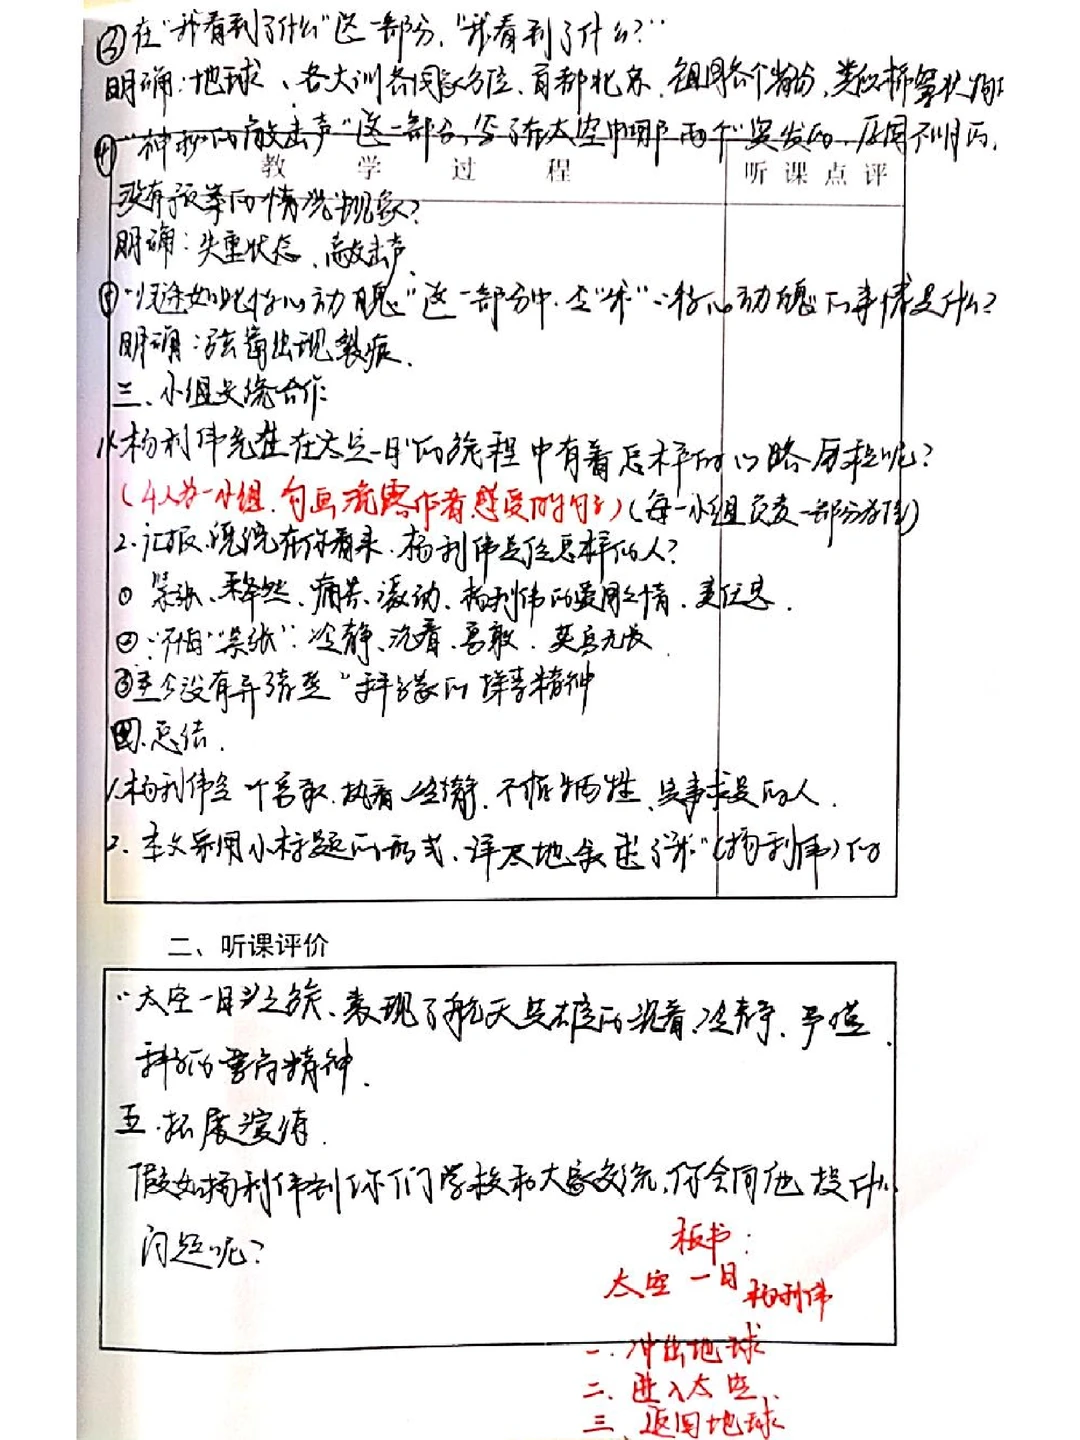 ③在“我看到了什么”这一部分，“我看到了什么？”
明确：地球、各大洲各国家方位、首都北京、祖国各个省份、类似棉絮状物体
④“神秘的敲击声”这一部分，写了在太空中哪两个“突发的、原因不明的，
教学过程 听课点评
没有预案的情况”现象？
明确：失重状态、敲击声
⑤“归途如此惊心动魄”这一部分中，令“我”“惊心动魄”的事情是什么？
明确：舷窗出现裂痕.
三、小组交流合作
1.杨利伟先生在太空一日的旅程中有着怎样的心路历程呢？
（4人为一小组，勾画流露作者感受的句子）（每一小组负责一部分为佳）
2.汇报、说说在你看来，杨利伟是位怎样的人？
① 紧张、释然、痛苦、激动、杨利伟的爱国之情、责任感.
②“不由”“紧张”：冷静、沉着、勇敢、英勇无畏
③至今没有弄清楚”科学家的探索精神
四.总结.
1.杨利伟是个勇敢、执着、冷静、不怕牺牲、实事求是的人.
2.本文采用小标题的形式、详尽地叙述了“我”（杨利伟）的
二、听课评价
“太空一日”之旅、表现了航天英雄的沉着、冷静、严谨.
科学的崇高精神.
五.拓展演练.
假如杨利伟到你们学校和大家交流，你会向他提什么
问题呢？
板书：
太空一日
杨利伟
一.冲出地球
二.进入太空.
三.返回地球